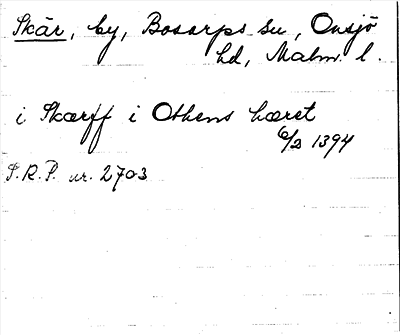 Skär, by, Bosarps sn, Onsjö
hd, Malm. l.
i Skærff i Othens hæret
6/2 1394
S.R.P. nr. 2703